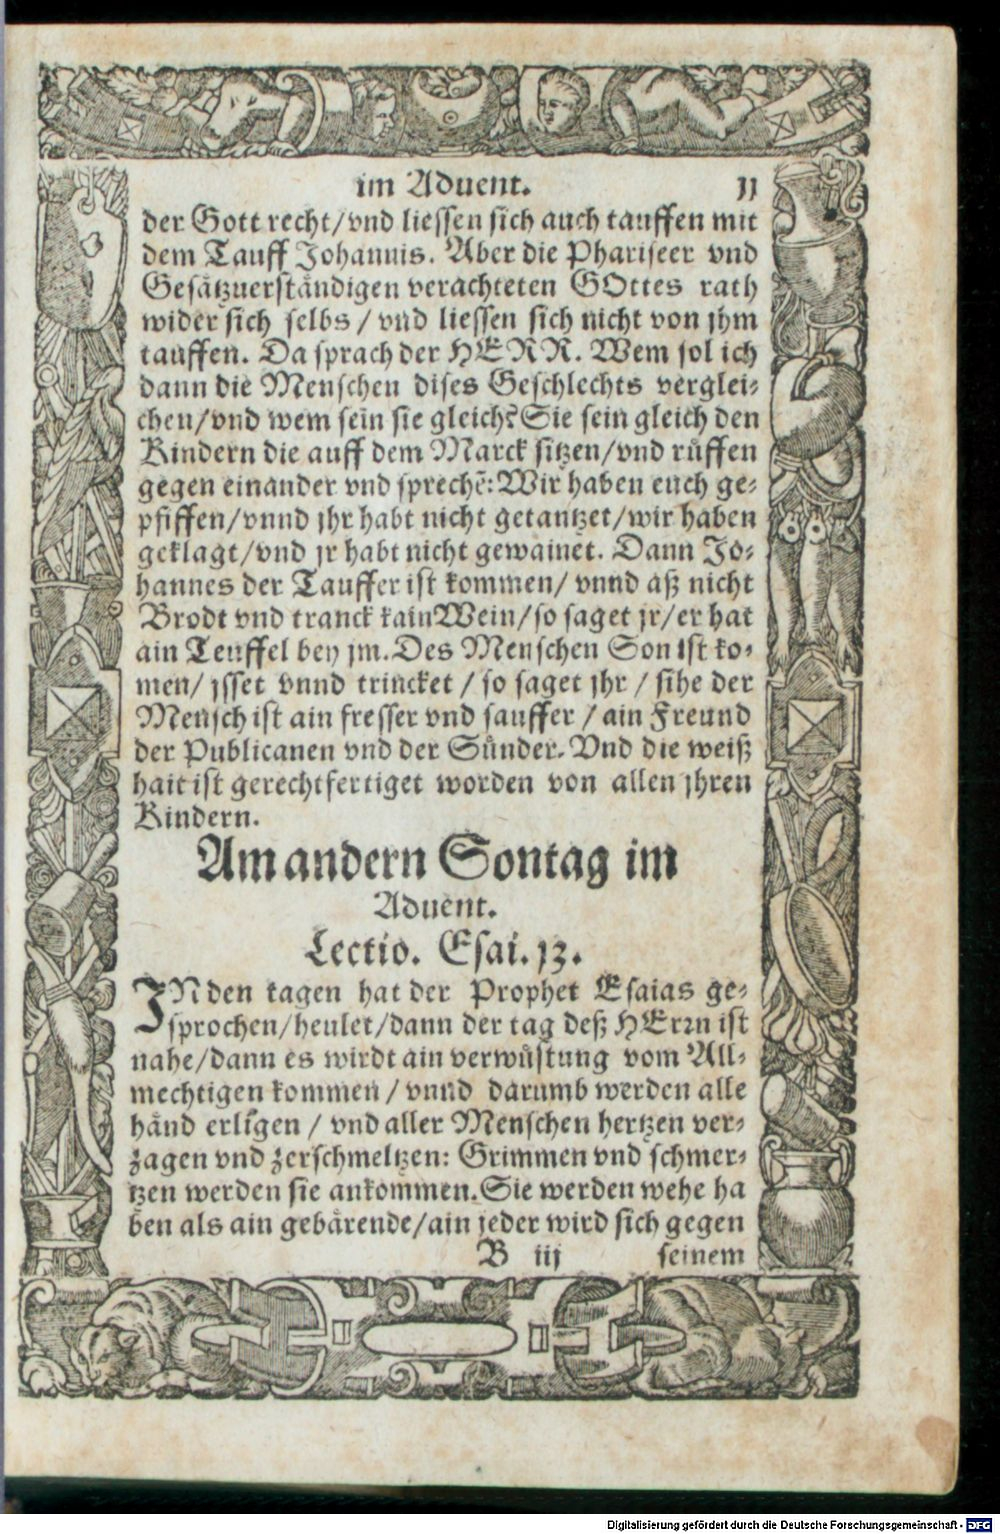 im Aduent. 11
der Gott recht/vnd liessen sich auch tauffen mit
dem Tauff Johannis. Aber die Phariseer vnd
Gesätzuerständigen verachteten GOttes rath
wider sich selbs / vnd liessen sich nicht von jhm
tauffen. Da sprach der HERR. Wem sol ich
dann die Menschen dises Geschlechts verglei-
chen/vnd wem sein sie gleich? Sie sein gleich den
Kindern die auff dem Marck sitzen/vnd růffen
gegen einander vnd sprechē: Wir haben euch ge-
pfiffen/vnnd jhr habt nicht getantzet/wir haben
geklagt/vnd jr habt nicht gewainet. Dann Jo-
hannes der Tauffer ist kommen/ vnnd aß nicht
Brodt vnd tranck kain Wein/so saget jr/er hat
ain Teuffel bey jm. Des Menschen Son ist ko-
men/ jsset vnnd trincket / so saget jhr / sihe der
Mensch ist ain fresser vnd sauffer / ain Freund
der Publicanen vnd der Sünder. Vnd die weiß
hait ist gerechtfertiget worden von allen jhren
Kindern.
Am andern Sontag im
Aduent.
Lectio. Esai. 13.
IN den tagen hat der Prophet Esaias ge-
sprochen/heulet/dann der tag deß HErrn ist
nahe/dann es wirdt ain verwüstung vom All-
mechtigen kommen / vnnd darumb werden alle
händ erligen / vnd aller Menschen hertzen ver-
zagen vnd zerschmeltzen: Grimmen vnd schmer-
tzen werden sie ankommen. Sie werden wehe ha
ben als ain gebärende/ain jeder wird sich gegen
B iij seinem
Digitalisierung gefördert durch die Deutsche Forschungsgemeinschaft - DFG